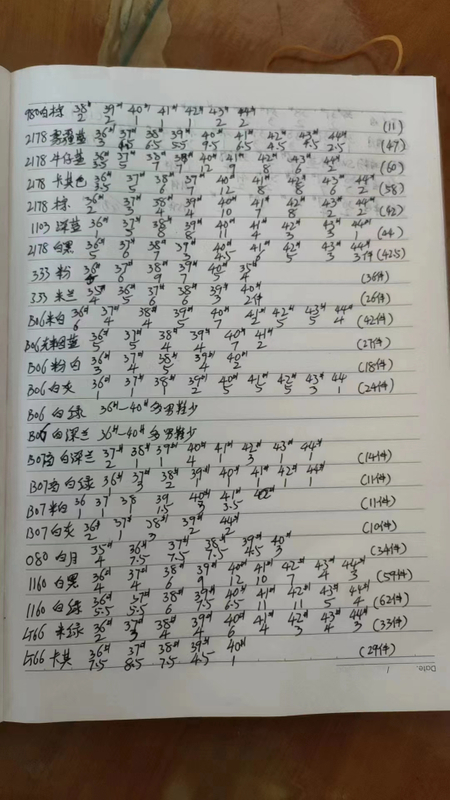 980白棕 38# 39# 40# 41# 42# 43# 44#
2 2 1 1 2 2 (11)
2178 36# 37# 38# 39# 40# 41# 42# 43# 44#
3 4.5 6.5 5.5 9.5 6.5 4.5 4.5 2.5 (47)
2178 牛仔蓝 36# 37# 38# 39# 40# 41# 42# 43# 44#
3.5 5 7 7 12 9 8 6 2 (60)
2178 卡其色 36# 37# 38# 37# 40# 41# 42# 43# 44#
3.5 5 7 12 8 8 6 2 (58)
2178 棕 36# 37# 38# 39# 40# 41# 42# 43# 44#
2 3 4 4 10 7 8 2 2 (42)
1103 深蓝 36# 37# 38# 39# 40# 41# 42# 43# 44#
2 8 8 11 4 3 3 1
2178 白黑 36# 37# 38# 37# 40# 41# 42# 43# 44#
5 6 7 3 4.5 6 5 3 3件 (42.5)
333 粉 36# 37# 38# 39# 40# 35#
6 9 7 5 4 (36件)
333 米兰 35# 36# 37# 38# 39# 40#
4 5 6 6 3 2件 (26件)
B06米白 36# 37# 38# 39# 40# 41# 42# 43# 44#
6 4 4 5 7 2 5 5 4 (42件)
36# 37# 38# 39# 40# 41#
5 5 4 4 7 2 (27件)
B06 粉白 36# 37# 38# 39# 40#
3 4 5 4 2 (18件)
B06 白灰 36# 37# 38# 39# 40# 41# 42# 43# 44
1 1 1 2 5 5 5 3 1 (24件)
B06 白绿 36#—40#多男鞋少
B06 白深兰 36#—40#多男鞋少
B07 白深兰 37# 38# 39# 40# 41# 42# 43# 44#
2 1 1 4 3 1 1 (14件)
B07 白绿 36# 37# 38# 39# 40# 41# 42# 44#
1 3 2 1 1 1 1 1 (11件)
B07 米白 36 37 38 39 40# 41#
1 1 1 1.5 3 3.5 (11件)
B07 白灰 36# 37# 38# 39# 44#
2 1 3 2 2 (10件)
080 白月 35# 36# 37# 38# 39# 40#
4 7.5 7.5 7.5 4.5 3 (34件)
1160 白黑 36# 37# 38# 39# 40# 41# 42# 43# 44#
4 4 6 9 12 10 7 4 3 (59件)
1160 白绿 36# 37# 38# 39# 40# 41# 42# 43# 44#
5.5 5.5 6 7.5 6.5 11 11 5 4 (62件)
L766 米绿 36# 37# 38# 39# 40# 41# 42# 43# 44#
2 3 4 4 6 4 3 4 3 (33件)
L766 卡其 36# 37# 38# 39# 40#
7.5 8.5 7.5 4.5 1 (29件)
Date. /